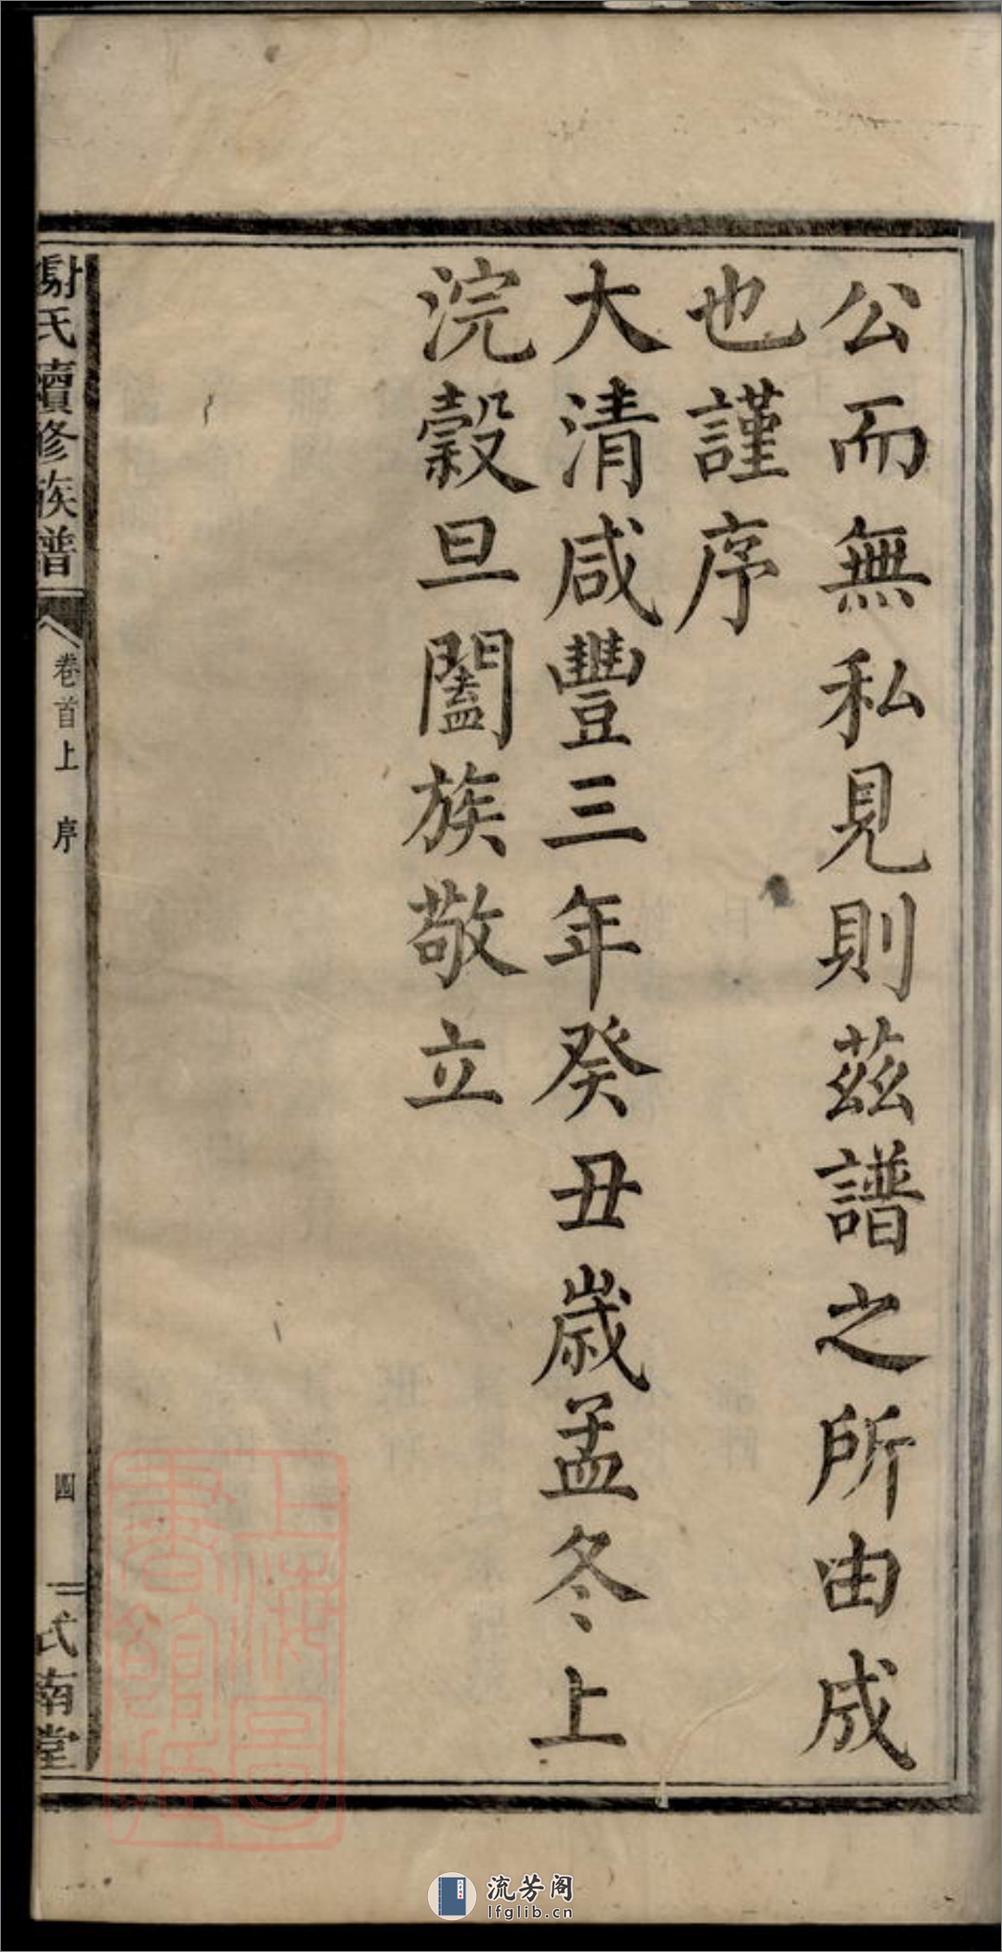 公而無私見則茲譜之所由成
也謹序
大清咸豐三年癸丑歲孟冬上
浣穀旦闔族敬立
謝氏續修族譜
卷首上 序
四
南堂
上海圖書館藏
流芳阁
lfglib.cn